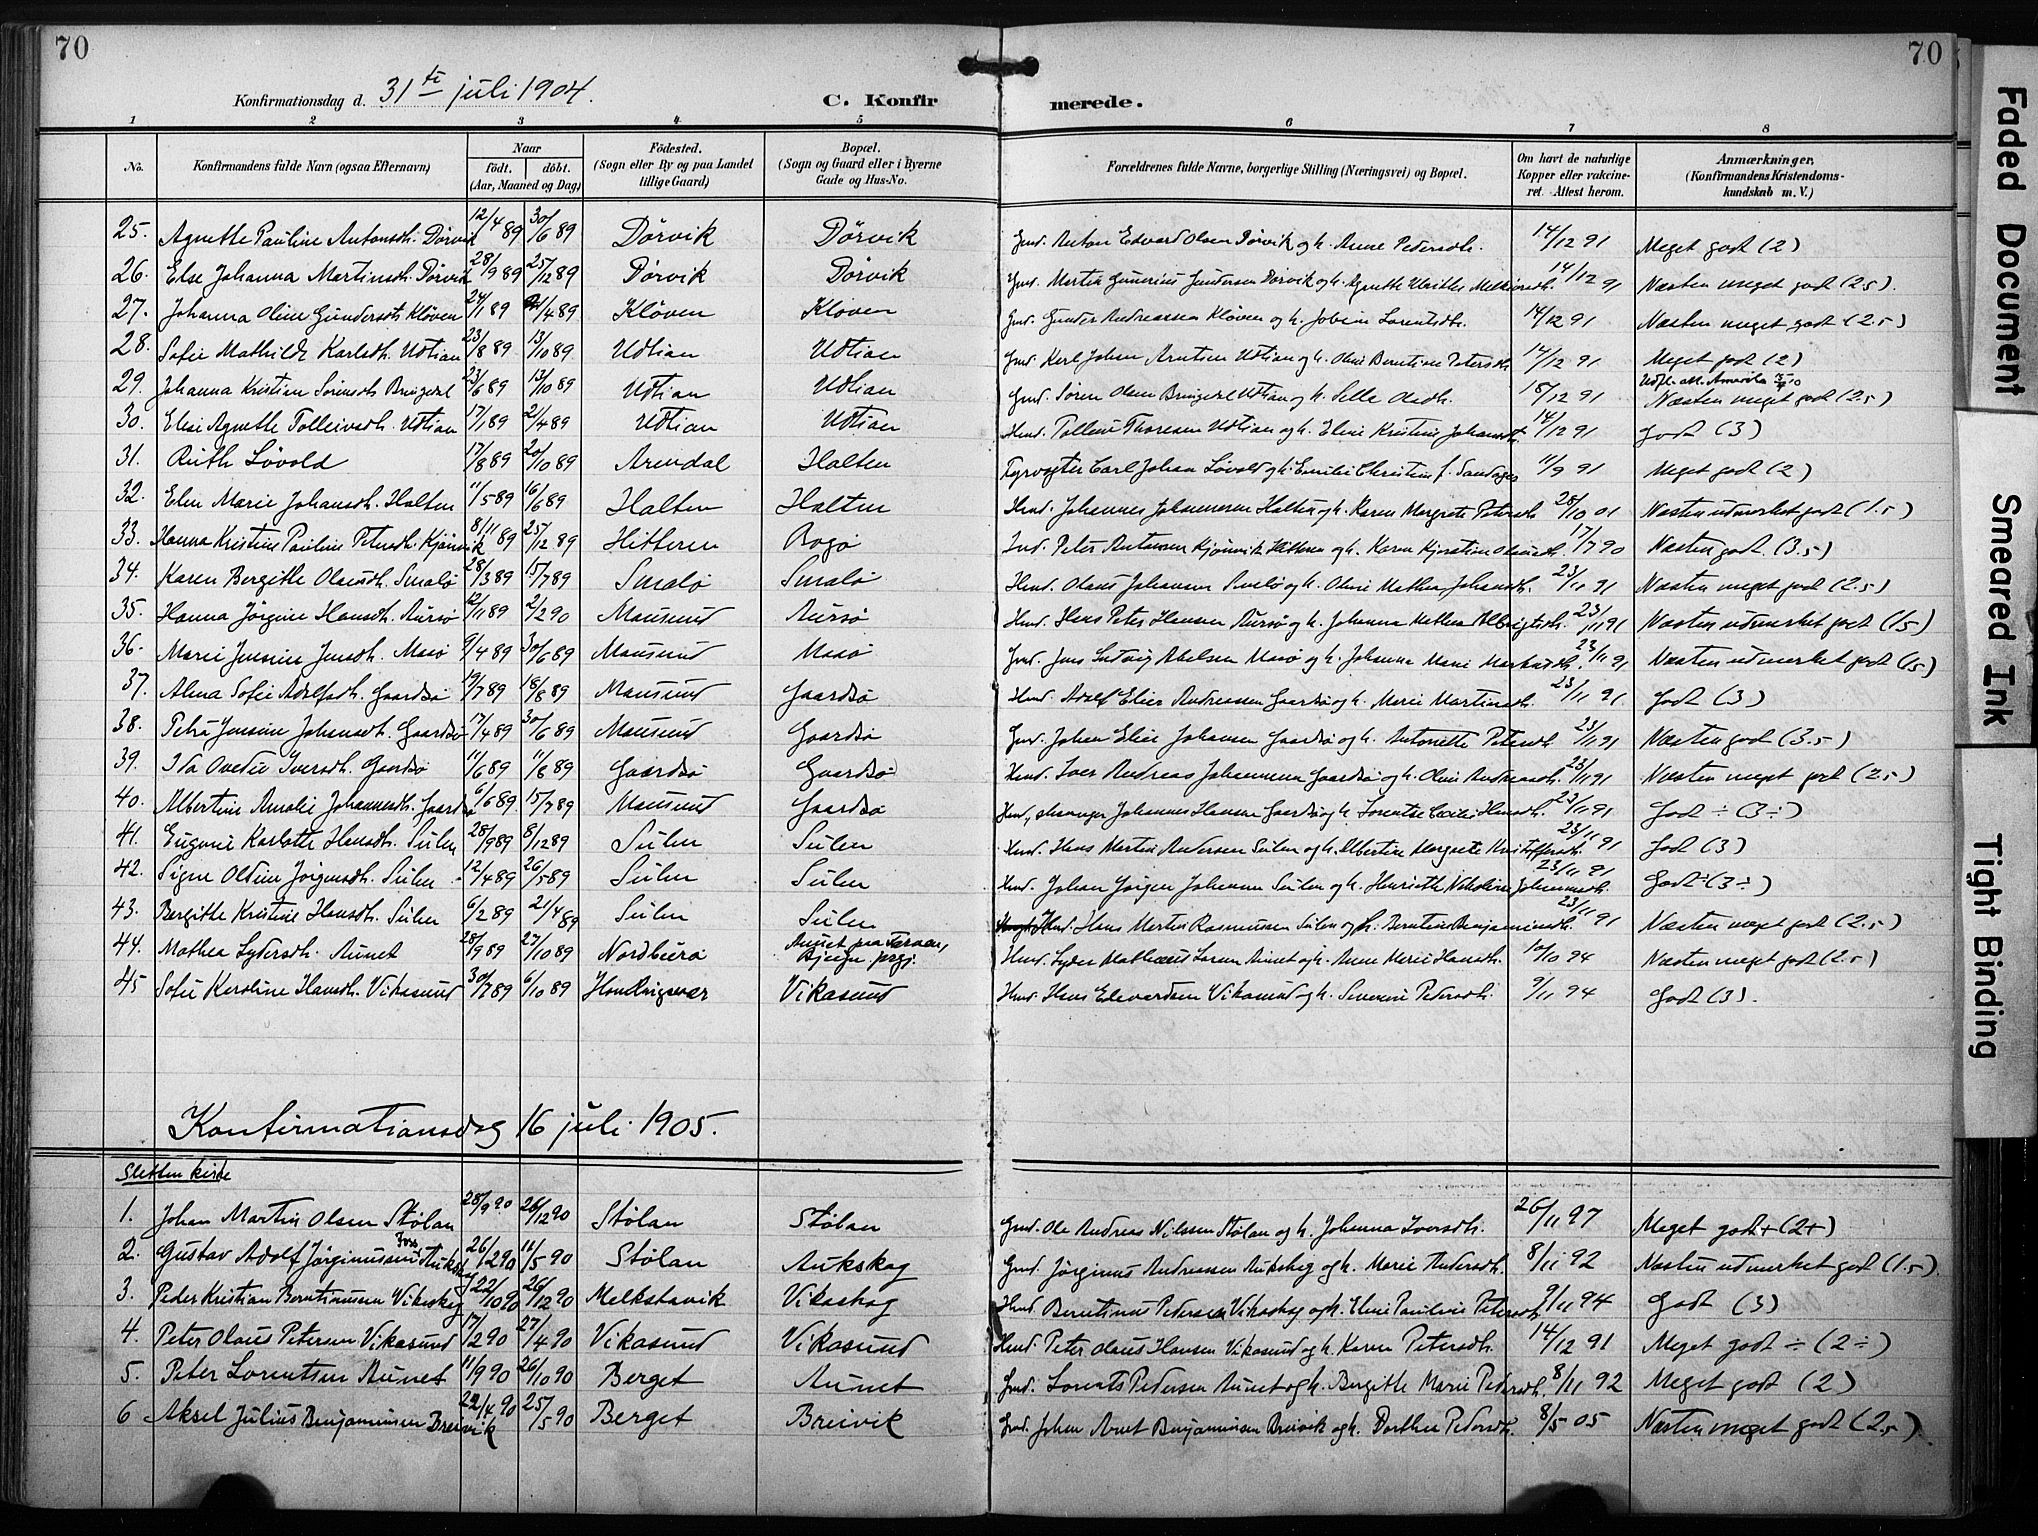 70
70
Konfirmationsdag d. 31te juli 1904.
C. Konfir merede.
1 2 3 4 5 6 7 8
No. Konfirmandens fulde Navn (ogsaa Efternavn) Naar født. døbt. (Aar, Maaned og Dag) Fødested. (Sogn eller By og paa Landet tillige Gaard) Bopæl. (Sogn og Gaard eller i Byerne Gade og Hus-No. Forældrenes fulde Navne, borgerlige Stilling (Næringsvei) og Bopæl. Om havt de naturlige Kopper eller vakcineret. Attest herom. Anmærkninger. (Konfirmandens Kristendomskundskab m. V.)
25. Agnette Pauline Antonsdh. Dørvik 12/4 89 30/6 89 Dørvik Dørvik Gmd. Anton Edvard Olsen Dørvik og h. Anne Pedersdh. 14/12 91 Meget godt (2)
26. Else Johanna Martinsdh. Dørvik 28/9 89 25/12 89 Dørvik Dørvik Gmd. Martin Gunerius Gundersen Dørvik og h. Agnette 14/12 91 Næsten meget godt (2.5).
27. Johanna Oline Gundersdh. Kløven 24/1 89 21/4 89 Kløven Kløven Gmd. Gunder Andreassen Kløven og h. Jobine Lorentsdh. 14/12 91 Næsten meget godt (2.5)
28. Sofie Mathilde Karlsdh. Udtian 23/8 89 13/10 89 Udtian Udtian Gmd. Karl Johan Arntsen Udtian og h. Oline Berntine Petersdh. 14/12 91 Meget godt (2)
29. Johanna Kristian Sørensdh. Bringsvel 23/6 89 13/10 89 Udtian Udtian Gmd. Søren Olsen Udtian og h. Selle Olsdh. 18/12 91 Udfl. att. Amerika Næsten meget godt (2.5)
30. Elise Agnette Tolleivsdh. Udtian 17/1 89 21/4 89 Udtian Udtian Hmd. Tolleiv Thoresen Udtian og h. Eline Kristine Johansdh. 14/12 91 Godt (3)
31. Ruth Løvold 17/8 89 20/10 89 Arendal Halten Fyrvogter Carl Johan Løvold og h. Emilie Christine f. 11/9 91 Meget godt (2)
32. Elen Marie Johansdh. Halten 11/5 89 16/6 89 Halten Halten Hmd. Johannes Johannesen Halten og h. Karen Margrete Petersdh. 28/10 01 Næsten udmerket godt (1.5)
33. Hanna Kristine Pauline Petersdh. Kjønvik 8/11 89 25/12 89 Hitteren Bogø Ind. Peter Antonsen Kjønvik Hitteren og h. Karen Kjerstine Olausdh. 17/7 90 Næsten godt (3.5)
34. Karen Bergitte Olausdh. Smalø 28/3 89 15/7 89 Smalø Smalø Hmd. Olaus Johansen Smalø og h. Oline Mathea Johansdh. 23/11 91 Næsten meget godt (2.5)
35. Hanna Jørgine Hansdh. Aursø 12/11 89 2/2 90 Mausund Aursø Hmd. Hans Peter Hansen Aursø og h. Johanna Mathea Albrigtsdh. 23/11 91 Næsten udmerket godt (1.5)
36. Marie Jensine Jensdh. Masø 9/4 89 30/6 89 Mausund Masø Gmd. Jens Ludvig Abelsen Masø og h. Johanna Marie 23/11 91 Næsten udmerket godt (1.5)
37. Alma Sofie Adolfsdh. Gaardsø 19/7 89 18/8 89 Mausund Gaardsø Hmd. Adolf Elias Andreassen Gaardsø og h. Marie Martinsdh. 23/11 91 Godt (3)
38. Petra Jensine Johansdh. Gaardsø 17/4 89 30/6 89 Mausund Gaardsø Gmd. Johan Elias Johansen Gaardsø og h. Antonette Petersdh. 23/11 91 Næsten godt (3.5)
39. Ida Ovedie Iversdh. Gaardsø 11/6 89 11/8 89 Gaardsø Gaardsø Hmd. Iver Andreas Johannesen Gaardsø og h. Oline Andreasdh. 23/11 91 Næsten meget godt (2.5)
40. Albertine Amalie Johannesdh. Gaardsø 6/6 89. 15/7 89 Mausund Gaardsø Hmd., Johannes Hansen Gaardsø og h. Lorentse Cecilie Hansdh. 23/11 91 Godt ÷ (3 ÷)
41. Eugenie Karlotte Hansdh. Sulen 28/9 89 8/12 89 Sulen Sulen Hmd. Hans Martin Andersen Sulen og h. Albertine Margrete Kristoffersdh. 23/11 91 Godt (3)
42. Signe Oldine Jørgensdh. Sulen 12/4 89 26/5 89 Sulen Sulen Hmd. Johan Jørgen Johansen Sulen og h. Henriette Nikoline Johannesdh. 23/11 91 Godt ÷ (3 ÷)
43. Bergitte Kristine Hansdh. Sulen 6/2 89 21/4 89 Sulen Sulen Hmd. Hans Martin Rasmussen Sulen og h. Berntine Benjaminsdh. 23/11 91 Næsten meget godt (2.5)
44. Mathea Lydersdh. Aunet 28/9 89 27/10 89 Nordburø Aunet paa Bjugn prgj. Hmd. Lyder Mathæus Larsen Aunet og h. Anne Marie Hansdh. 10/10 94 Næsten meget godt (2.5)
45 Sofie Karoline Hansdh. Vikasund 30/7 89 6/10 89 Hondrigsvær Vikasund Hmd. Hans Edvardsen Vikasund og h. Severine Pedersdh. 9/11 94 Godt (3).
Konfirmationsdag 16 juli 1905.
Sletten kirke
1. Johan Martin Olsen Stølan 28/9 90 26/12 90 Stølan Stølan Gmd. Ole Andreas Nilssen Stølan og h. Johanna Iversdh. 26/11 97 Meget godt + (2+)
2. Gustav Adolf Jørginussen Foss Aukskag 26/1 290 11/5 90 Stølan Aukskag Gmd. Jørginus Andreassen Aukskag og h. Marie Andersdh. 8/11 92 Næsten udmerket godt (1.5).
3. Peder Kristian Berntinusen Vikaskag 22/10 90 26/12 90 Melkstavik Vikaskag Hmd. Berntinus Pedersen Vikaskag og h. Eline Pauline Petersdh. 9/11 94 Godt (3)
4. Peter Olaus Petersen Vikasund 17/2 90 27/4 90 Vikasund Vikasund Hmd. Peter Olaus Hansen Vikasund og h. Karen Petersdh. 14/12 91 Meget godt ÷ (2 ÷)
5. Peter Lorentsen Aunet 11/9 90 26/10 90 Berget Aunet Gmd. Lorents Pedersen Aunet og h. Bergitte Marie Pedersdh. 8/11 92 Meget godt (2)
6 Aksel Julius Benjaminsen Breivik 22/4 90 25/5 90 Berget Breivik Gmd. Johan Arnt Benjaminsen Breivik og h. Dorthea Pedersdh. 8/5 05 Næsten meget godt (2.5)
Faded Document
Smeared Ink
Tight Binding